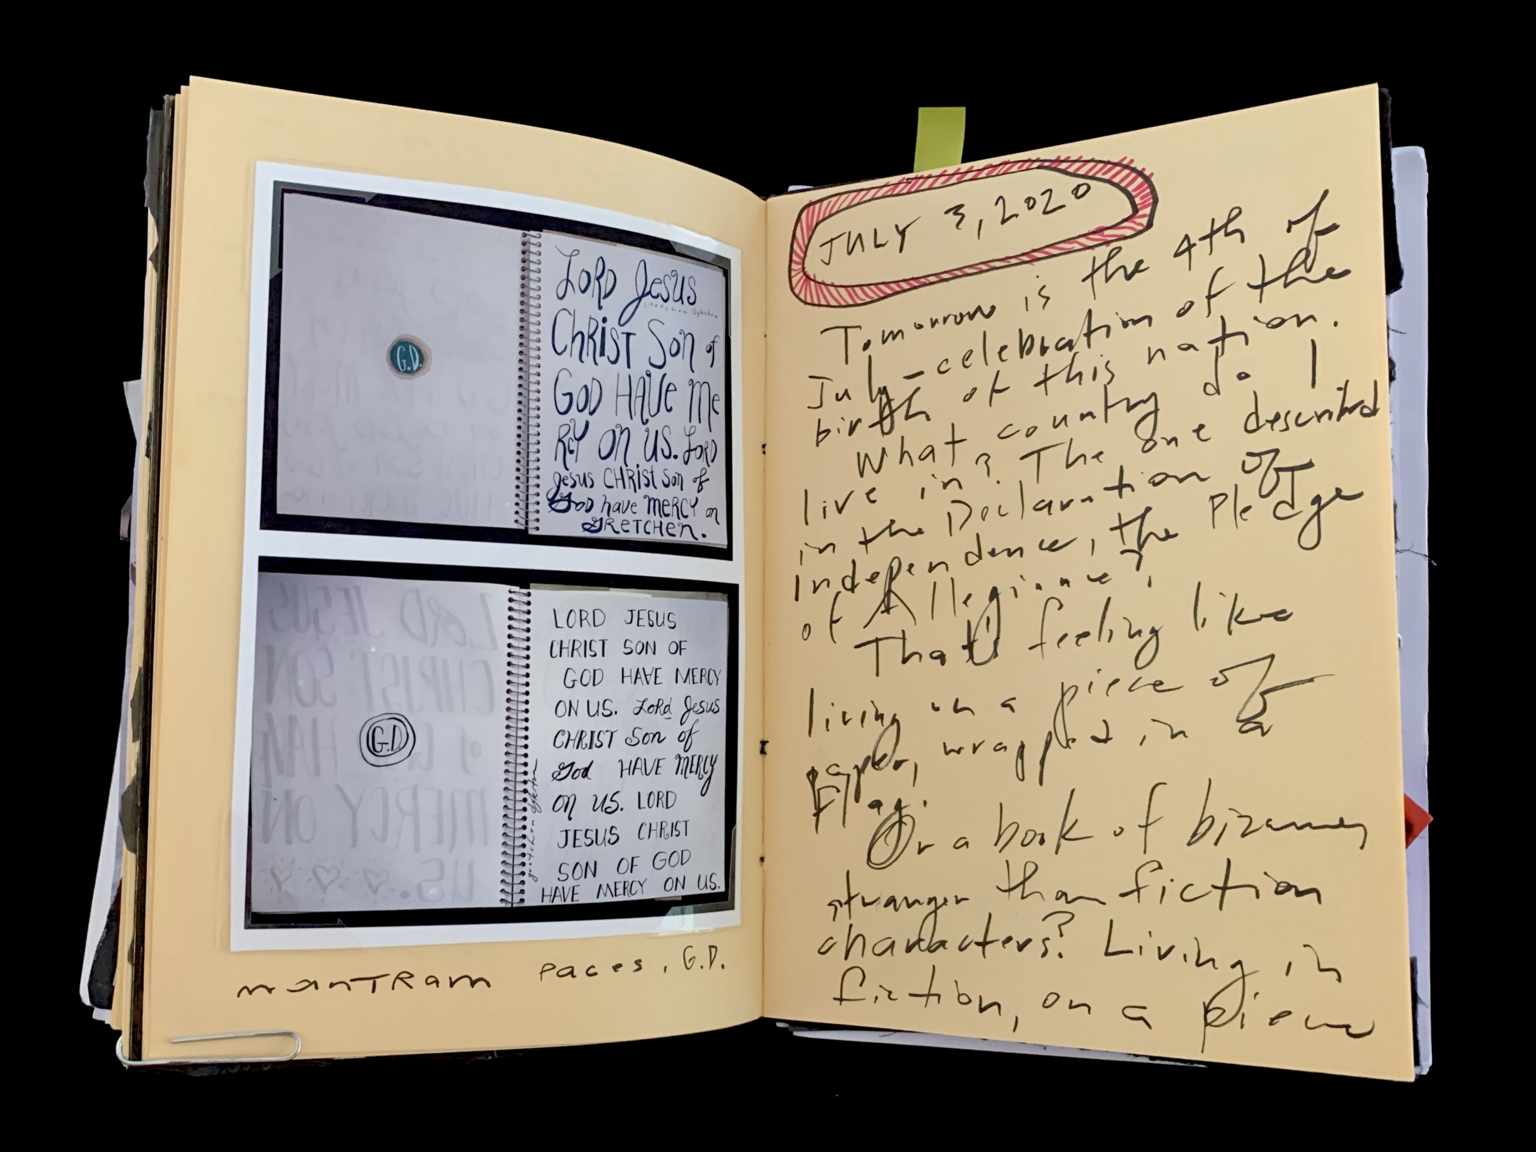 G.D.
LORD JESUS
CHRIST SON of
GOD HAVE ME
RCY ON US. LORD
Jesus CHRIST Son of
God have MERCY on
GRETCHEN.
G.D
LORD JESUS
CHRIST SON OF
GOD HAVE MERCY
ON US. Lord Jesus
CHRIST Son of
God HAVE MERCY
on US. LORD
JESUS CHRIST
SON OF GOD
HAVE MERCY ON US.
LORD JESUS
CHRIST SON
of G
MERCY ON
US.
manTRam Paces, G.D.
JULY 3, 2020
Tomorrow is the 4th of
July - celebration of the
birth of this nation.
What country do I
live in? The one described
in the Declaration of
Independence, the Pledge
of Allegiance?
That's feeling like
living on a piece of
paper, wrapped in a
Flag.
Or a book of bizarre,
stranger than fiction
characters? Living in
fiction, on a piece